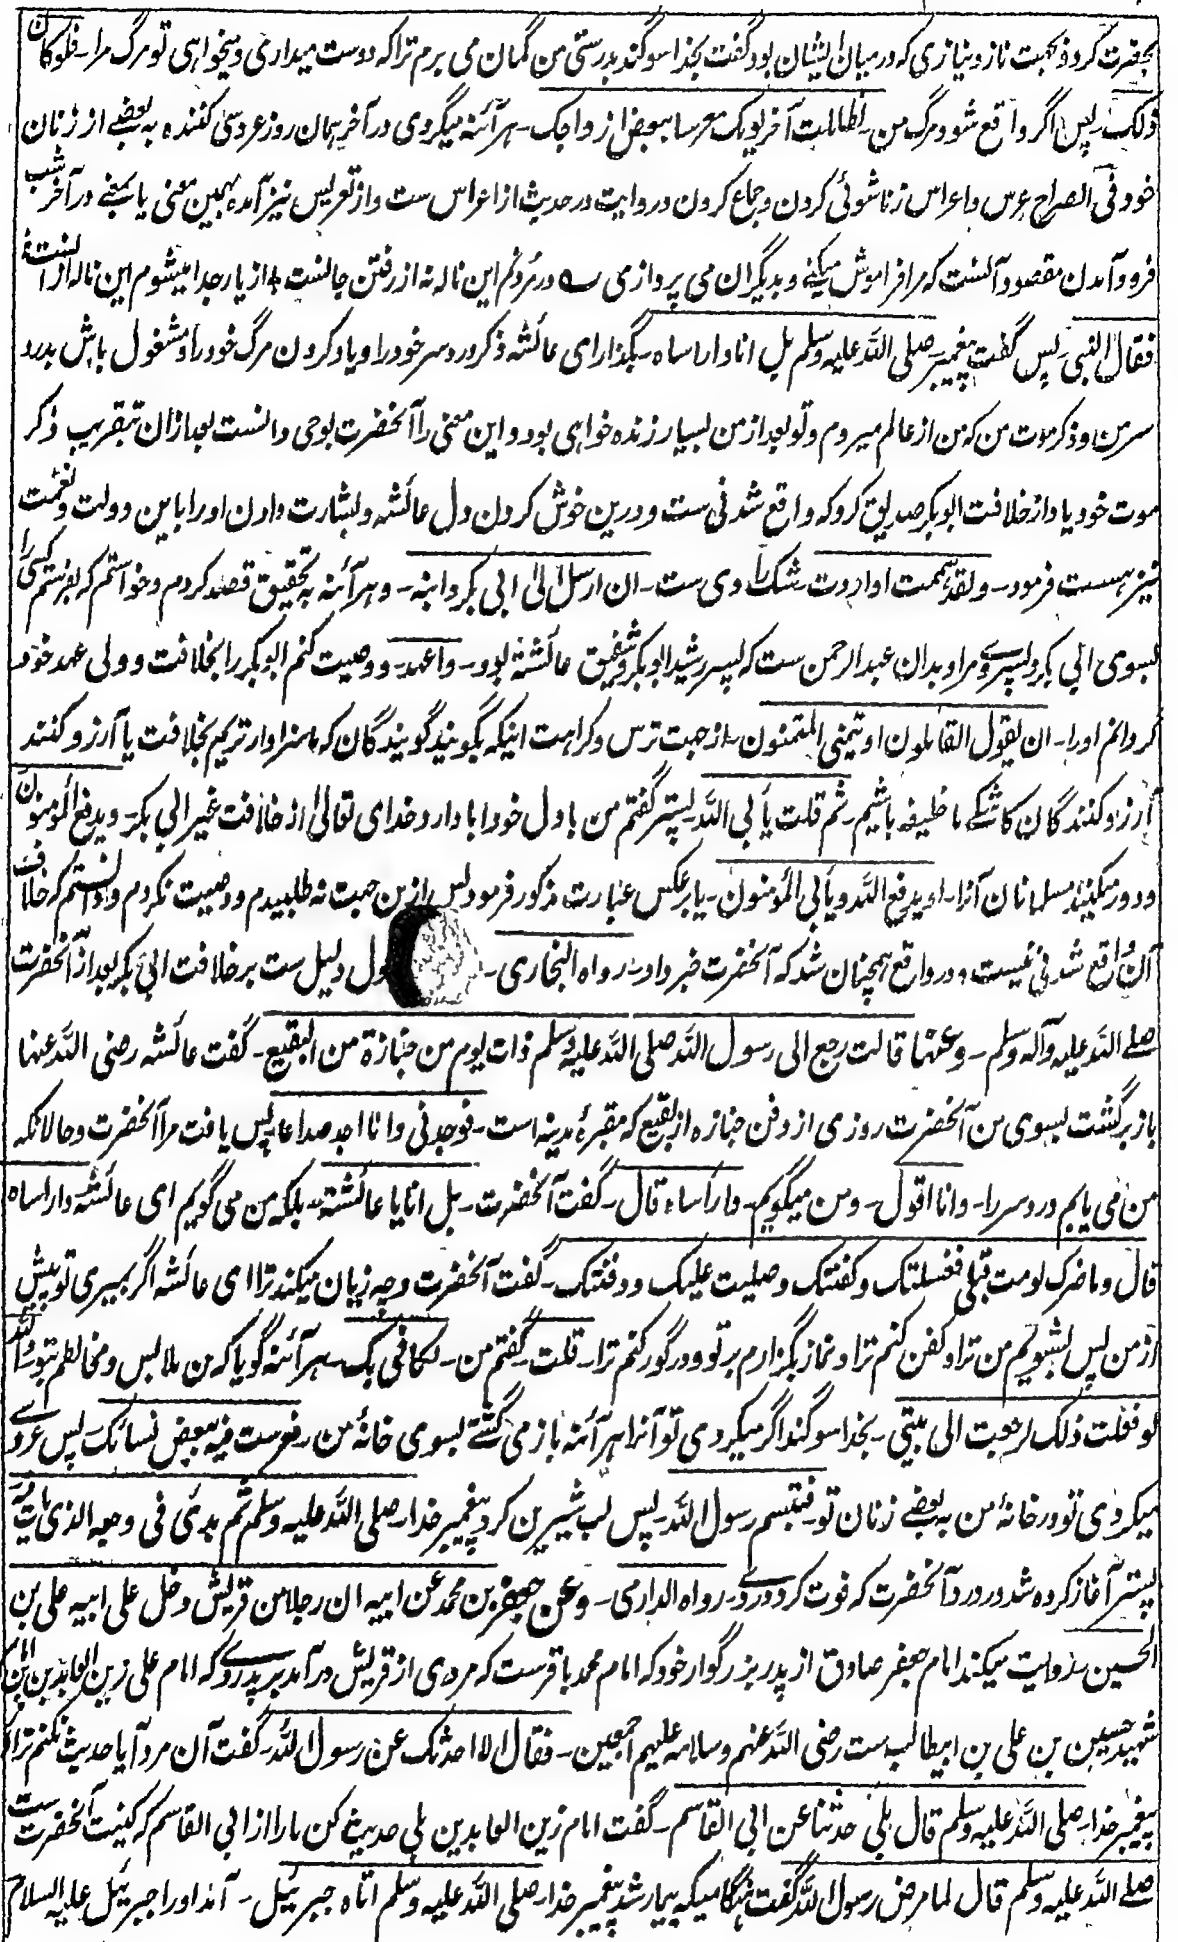 بحضرت کرد و بجهت ناز و نیازی که در میان ایشان بود گفت بخدا سوگند بدرستی من گمان می برم ترا که دوست میداری و میخواهی تو مرگ مرا ـ فلو کان
ذلک ـ پس اگر واقع شود مرگ من ـ لظللت آخر یومک معرسا ببعض ازواجک ـ هر آئنه میگردی در آخر همان روز عروسی کننده به بعضے از زنان
خود فی الصراح عرس و اعراس زناشوئی کردن و جماع کردن و روایت در حدیث از اعراس ست و از تعریس نیز آمده بهمین معنی یا بمعنے در آخر شب
فرود آمدن مقصود آنست که مرا فراموش میکنے و بدیگران می پردازی ے در مردنم این ناله نه از رفتن جانست ÷ از یار جدا میشوم این ناله از انست
فقال النبی ـ پس گفت پیغمبر صلی الله علیه وسلم بل انا وا راساه ـ بگذار ای عائشه ذکر درد سر خود را و یاد کردن مرگ خود را و مشغول باش بدرد
سر من و ذکر موت من که من از عالم میروم و تو بعد از من بسیار زنده خواهی بود و این معنی را آنحضرت بوحی دانست بعد ازان بتقریب ذکر
موت خود یاد از خلافت ابوبکر صدیق کرد که واقع شدنی ست و درین خوش کردن دل عائشه و بشارت دادن او را باین دولت و نعمت
نیز هست فرمود ـ و لقد هممت او اردت ـ شک راوی ست ـ ان ارسل الی ابی بکر و ابنه ـ و هر آئنه به تحقیق قصد کردم و خواستم که بفرستم کسی را
بسوی ابی بکر و پسر وے مراد بدان عبد الرحمن ست که پسر رشید ابوبکر و شفیق عائشة بود ـ و اعهد ـ و وصیت کنم ابوبکر را بخلافت و ولی عهد خود
گردانم او را ـ ان یقول القائلون او یتمنی المتمنون ـ از جهت ترس و کراهت اینکه بگویند گویندگان که ما سزاوار تریم بخلافت یا آرزو کنند
آرزو کنندگان کاشکے ما خلیفه باشیم ـ ثم قلت یأبی الله ـ پستر گفتم من با دل خود ابا دارد خدای تعالی از خلافت غیر ابی بکر ـ و یدفع المومنون
و دور میکنند مسلمانان آنرا ـ او یدفع الله و یأبی المؤمنون ـ یا بر عکس عبارت مذکور فرمود پس ازین جهت نه طلبیدم و وصیت نکردم و دانستم که خلافت
آن واقع شدنی نیست و در واقع همچنان شد که آنحضرت خبر داد ـ رواه البخاری ـ ول دلیل ست بر خلافت ابی بکر بعد از آنحضرت
صلے الله علیه و آله وسلم ـ و عنها قالت رجع الی رسول الله صلی الله علیه وسلم ذات یوم من جنازة من البقیع ـ گفت عائشه رضی الله عنها
باز برگشت بسوی من آنحضرت روزی از دفن جنازه از بقیع که مقبرهٔ مدینه است ـ فوجدنی و انا اجد صداعا ـ پس یافت مرا آنحضرت و حالانکه
من می یابم درد سر را ـ و انا اقول ـ و من میگویم ـ وا رأساه قال ـ گفت آنحضرت ـ بل انا یا عائشة ـ بلکه من می گویم ای عائشه وا راساه
قال و ما ضرک لو مت قبلی فغسلتک و کفنتک و صلیت علیک و دفنتک ـ گفت آنحضرت و چه زیان میکند ترا ای عائشه اگر بمیری تو پیش
از من پس بشویم من ترا و کفن کنم ترا و نماز بگزارم بر تو و در گور کنم ترا ـ قلت ـ گفتم من ـ لکانی بک ـ هر آئنه گویا که من ملابس و مخالطم بتو ـ و الله
لو فعلت ذلک لرجعت الی بیتی ـ بخدا سوگند اگر میکردی تو آنرا هر آئنه باز می گشتے بسوی خانهٔ من ـ فعرست فیه ببعض نسائک ـ پس عروسے
میکردی تو در خانهٔ من به بعضے زنان تو ـ فتبسم رسول الله ـ پس لب شیرین کرد پیغمبر خدا ـ صلی الله علیه وسلم ثم بدئ فی وجعه الذی مات فیه
پستر آغاز کرده شد در درد آنحضرت که فوت کرد دروے ـ رواه الدارمی ـ و عن جعفر بن محمد عن ابیه ان رجلا من قریش دخل علی ابیه علی بن
الحسین ـ روایت میکند امام جعفر صادق از پدر بزرگوار خود که امام محمد باقر ست که مردی از قریش در آمد بر پدر وے که امام علی زین العابدین بن امام
شهید حسین بن علی بن ابیطالب ست رضی الله عنهم و سلامه علیهم اجمعین ـ فقال الا احدثک عن رسول الله ـ گفت آن مرد آیا حدیث نکنم ترا از
پیغمبر خدا ـ صلی الله علیه وسلم قال بلی حدثنا عن ابی القاسم ـ گفت امام زین العابدین بلی حدیث کن ما را از ابی القاسم که کنیت آنحضرت ست
صلے الله علیه وسلم قال لما مرض رسول الله ـ گفت هنگامیکه بیمار شد پیغمبر خدا ـ صلی الله علیه وسلم اتاه جبرئیل ـ آمد او را جبرئیل علیه السلام